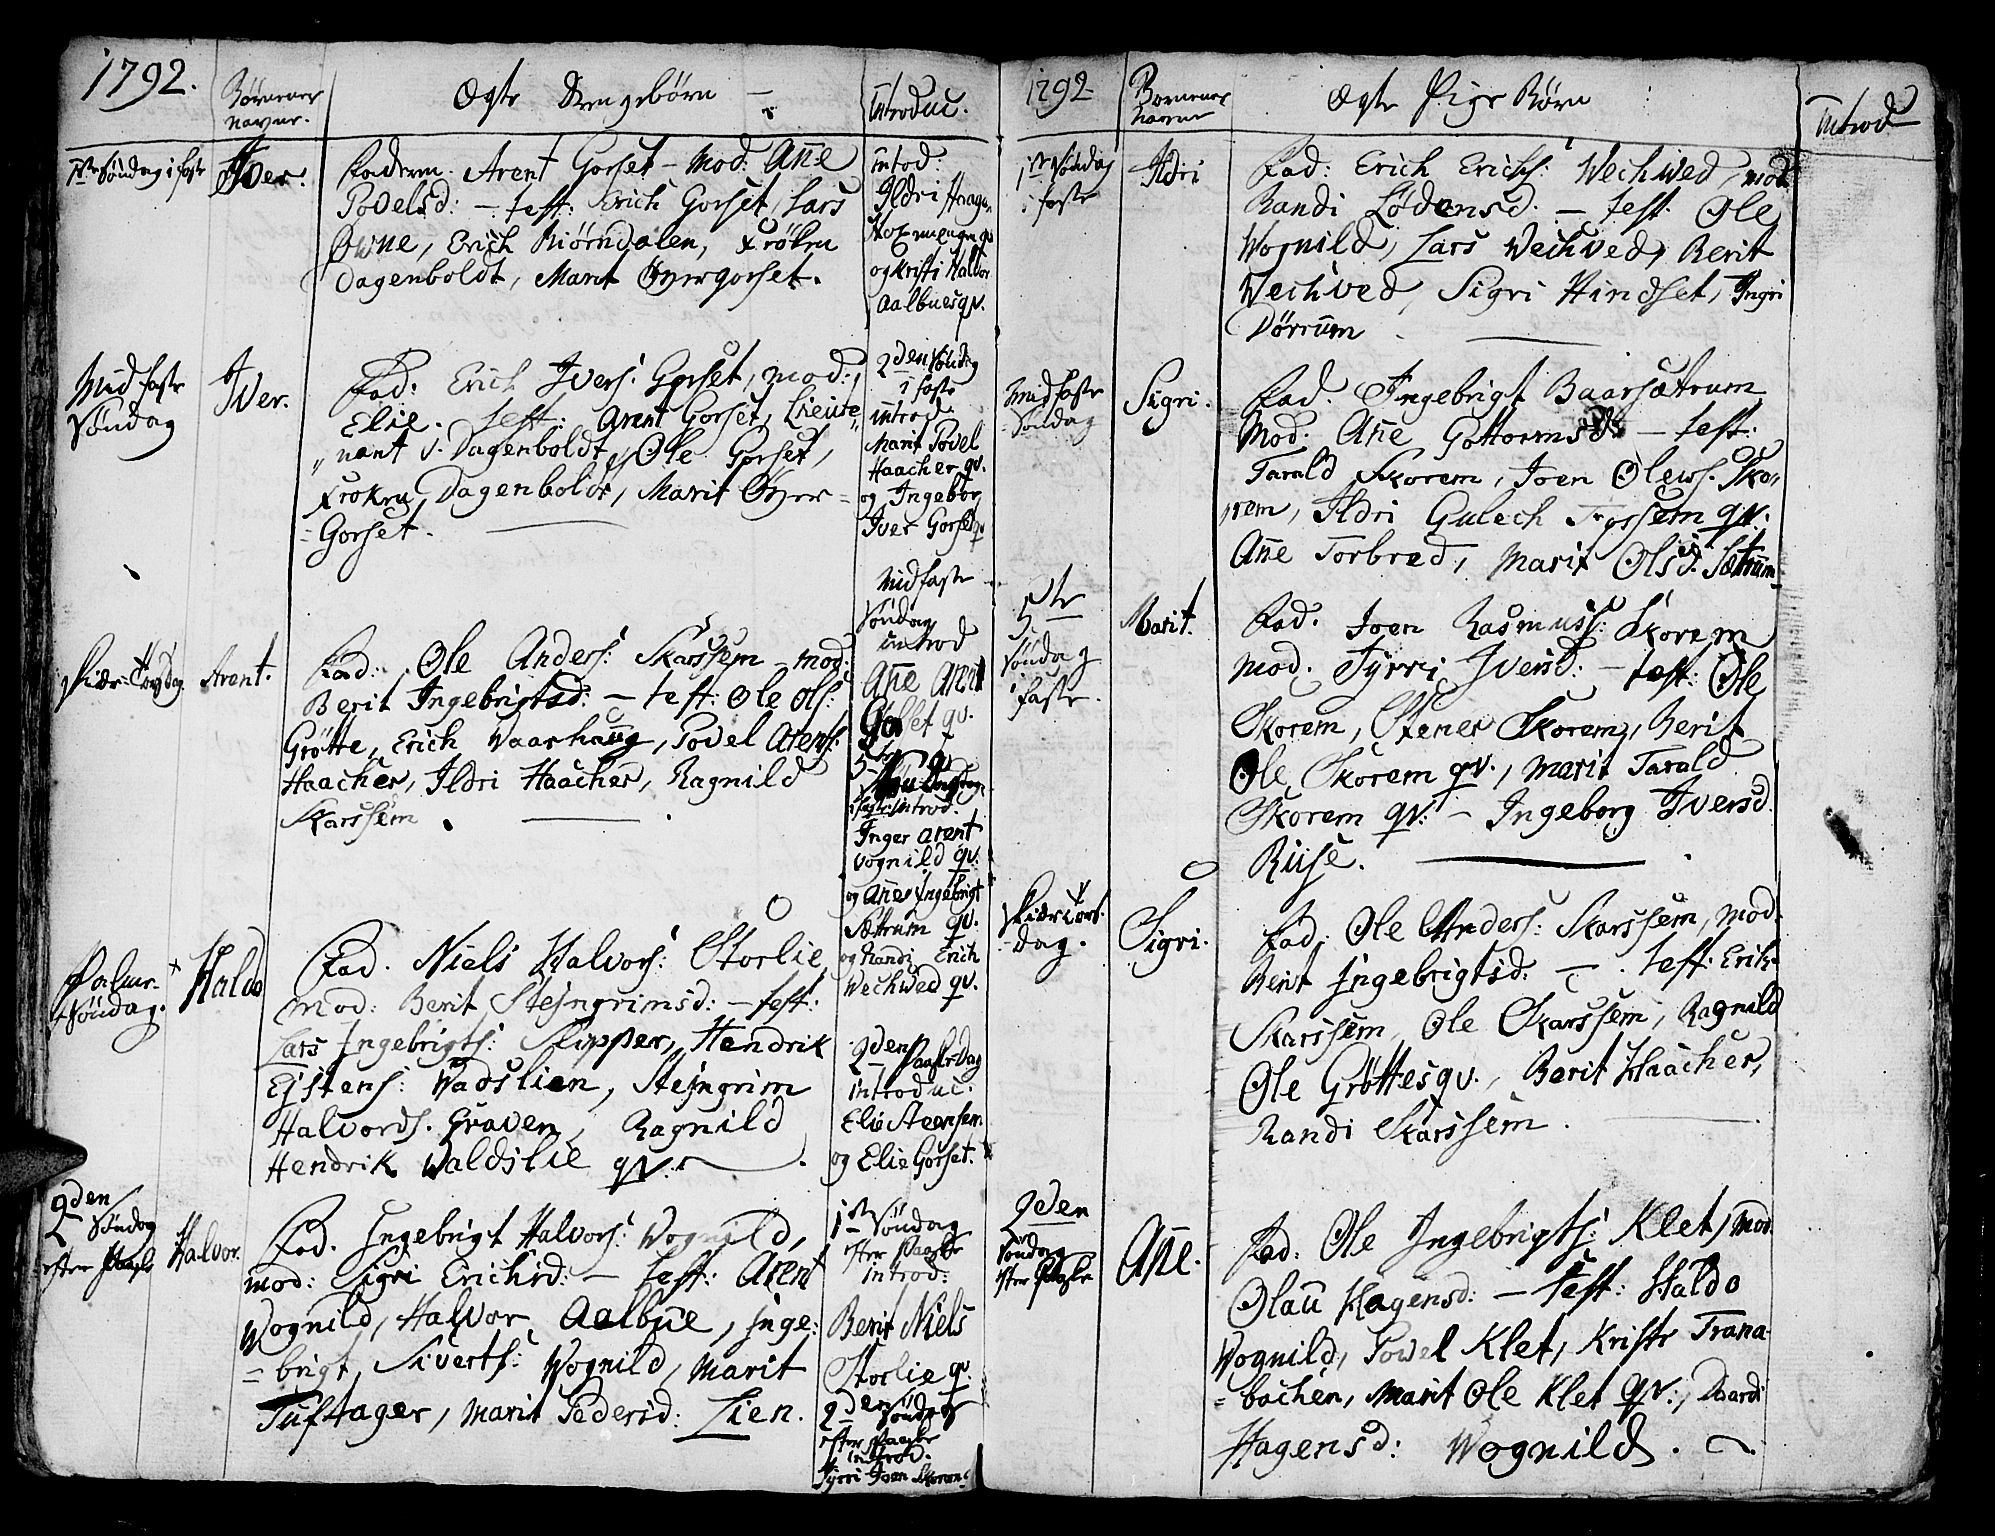 1792.
Børnenes
Navne.
Ægte Drengebørn
Introduc.
1ste Søndag i faste
Iver.
Faderen. Arent Gorset - Mod: Añe
Povelsd: - test: Erich Gorset, Lars
Øwne, Erich Biørndalen, Frøken
Dagenboldt, Marit Øvergorset.
Introd:
Ildri Haagen
og Kristi Halvor
Aalbuesqv.
Midfaste
Søndag
Iver.
Fad: Erich Ivers: Gorset, mod:
Elie. test: Arent Gorset, Lieute„
„nant v. Dagenboldt, Ole Gorset,
Frøken Dagenboldt, Marit Øver=
=Gorset.
2den Søndag
i faste
introd.
Marit Povel
Haacher qv.
og Ingebor
Iver Gorset qv
Skiær-Torsdag
Arent.
Fad: Ole Anders: Skarssem mod:
Berit Ingebrigtsd: - test: Ole Ols:
Grøtte, Erich Vaarhaug, Povel Arens:
Haacher, Ildri Haacher, Ragnild
Skarssem
Midfaste
Søndag
introd
Añe Arent
Gorset qv.
5te
Søndag
i faste introd.
Inger Arent
Vognild qv.
og Añe Ingebrigt
Sættrum qv.
og Randi Erich
Wechwed qv.
Palme-
Søndag.
Haldo
Fad. Niels Halvors: Storlie
Mod: Berit Stejngrimsd: - test:
Lars Ingebrigts: Skipper, Hendrik
Ejstens: Vadslien, Stejngrim
Halvords. Graven, Ragnild
Hendrik Waldslie qv.
2den Paaske Dag
introduc.
Elie Steensem
og Elie Gorset.
2den
Søndag
efter Paaske
Halvor.
Fad. Ingebrigt Halvors: Wognild,
mod: Sigri Erichsd: - test: Arent
Wognild, Halvor Aalbue, Inge:
=brigt Siverts: Wognild, Marit
Tuftager, Marit Pedersd: Lien.
1ste Søndag
efter Paaske
introd:
Berit Niels
Storlie qv.
2den Søndag
efter Paaske
introd.
Tyrri Joen Skorem
1792
Børnenes
Navne
Ægte Pige Børn
Introd
1ste Søndag
i faste
Ildri
Fad: Erich Erichs: Wechwed, mod:
Randi Lødensd. - test. Ole
Wognild, Lars Wechved, Berit
Wechved, Sigri Hindset, Ingri
Dørrum
Midfaste
Søndag
Sigri.
Fad. Ingebrigt Baarsætrum
Mod. Añe Gottormsd. - test.
Tarald Skorem, Joen Olews. Sko„
„rem, Ildri Gulech Fossem qv.
Añe Torbrod, Marit Olsd. Sættrum
5te
Søndag
i faste.
Marit.
Fad. Joen Rasmuss: Skorem
mod. Tyrri Iversd: - test: Ole
Skorem, Stener Skorem, Berit
Ole Skorem qv., Marit Tarald
Skorem qv: - Ingeborg Iversd.
Riise.
Skiær Tors-
-dag.
Sigri.
Fad: Ole Anders: Skarssem, mod:
Berit Ingebrigtsd: - test: Erik
Skarssem, Ole Skarssem, Ragnild
Ole Grøttesqv., Berit Haacher,
Randi Skarssem.
2den
Søndag
efter Paaske
Añe.
Fad: Ole Ingebrigts: Klet, mod.
Olau Hagensd: - test: Haldo
Wognild, Povel Klet, Kristr Trana-
=bachen, Marit Ole Klet qv:, Baardi
Hagensd: Wognild.